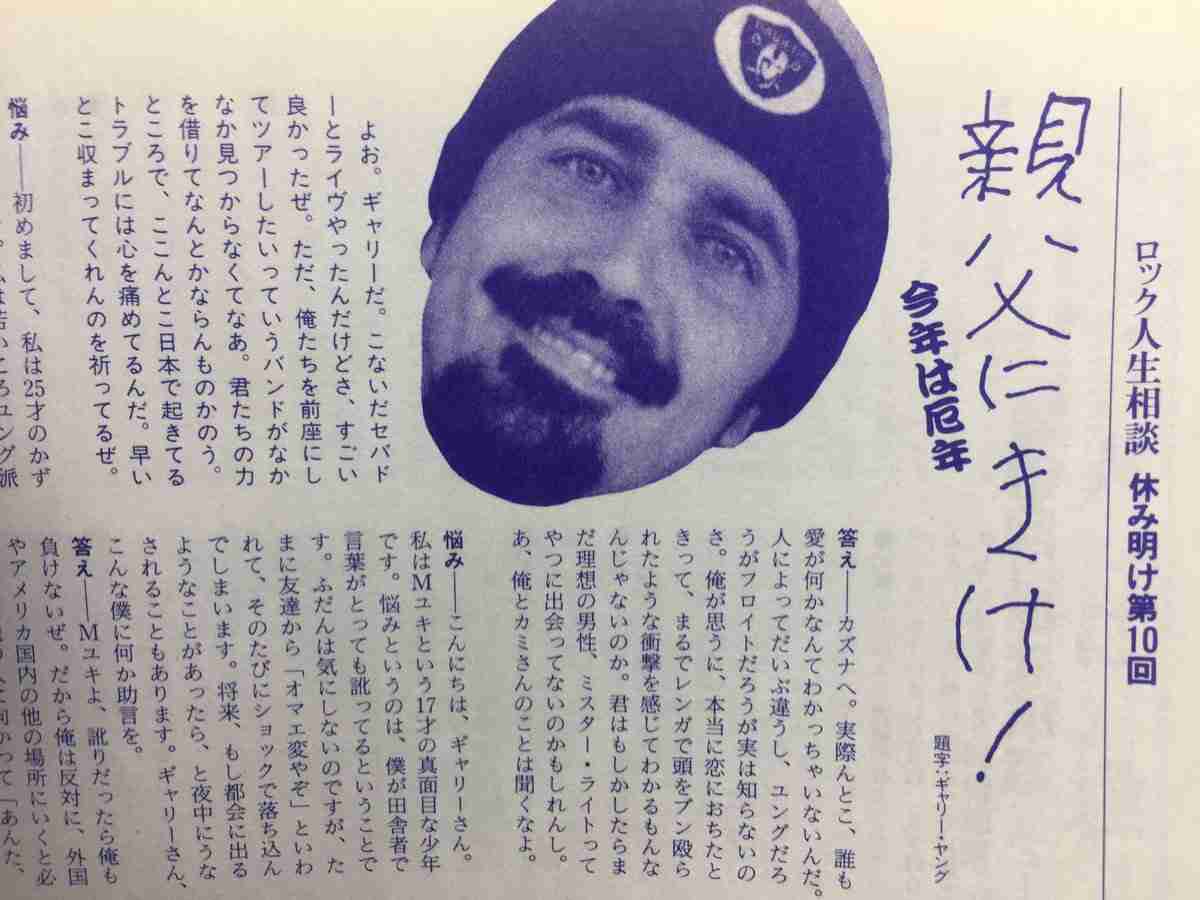 ロック人生相談 休み明け第10回
親父にきけ!
今年は厄年
題字:ギャリー・ヤング
よお。ギャリーだ。こないだセバド
ーとライヴやったんだけどさ、すごい
良かったぜ。ただ、俺たちを前座にし
てツアーしたいっていうバンドがなか
なか見つからなくてなあ。君たちの力
を借りてなんとかならんものかのう。
ところで、ここんとこ日本で起きてる
トラブルには心を痛めてるんだ。早い
とこ収まってくれんのを祈ってるぜ。
悩み――初めまして、私は25才のかず
は若いころユング派
答え――カズナへ。実際んとこ、誰も
愛が何かなんてわかっちゃいないんだ。
人によってだいぶ違うし、ユングだろ
うがフロイトだろうが実は知らないの
さ。俺が思うに、本当に恋におちたと
きって、まるでレンガで頭をブン殴ら
れたような衝撃を感じてわかるもんな
んじゃないのか。君はもしかしたらま
だ理想の男性、ミスター・ライトって
やつに出会ってないのかもしれんし。
あ、俺とカミさんのことは聞くなよ。
悩み――こんにちは、ギャリーさん。
私はMユキという17才の真面目な少年
です。悩みというのは、僕が田舎者で
言葉がとっても訛ってるということで
す。ふだんは気にしないのですが、た
まに友達から「オマエ変やぞ」といわ
れて、そのたびにショックで落ち込ん
でしまいます。将来、もし都会に出る
ようなことがあったら、と夜中にうな
されることもあります。ギャリーさん、
こんな僕に何か助言を。
答え――Mユキよ、訛りだったら俺も
負けないぜ。だから俺は反対に、外国
やアメリカ国内の他の場所にいくと必
に向かって「あんた、